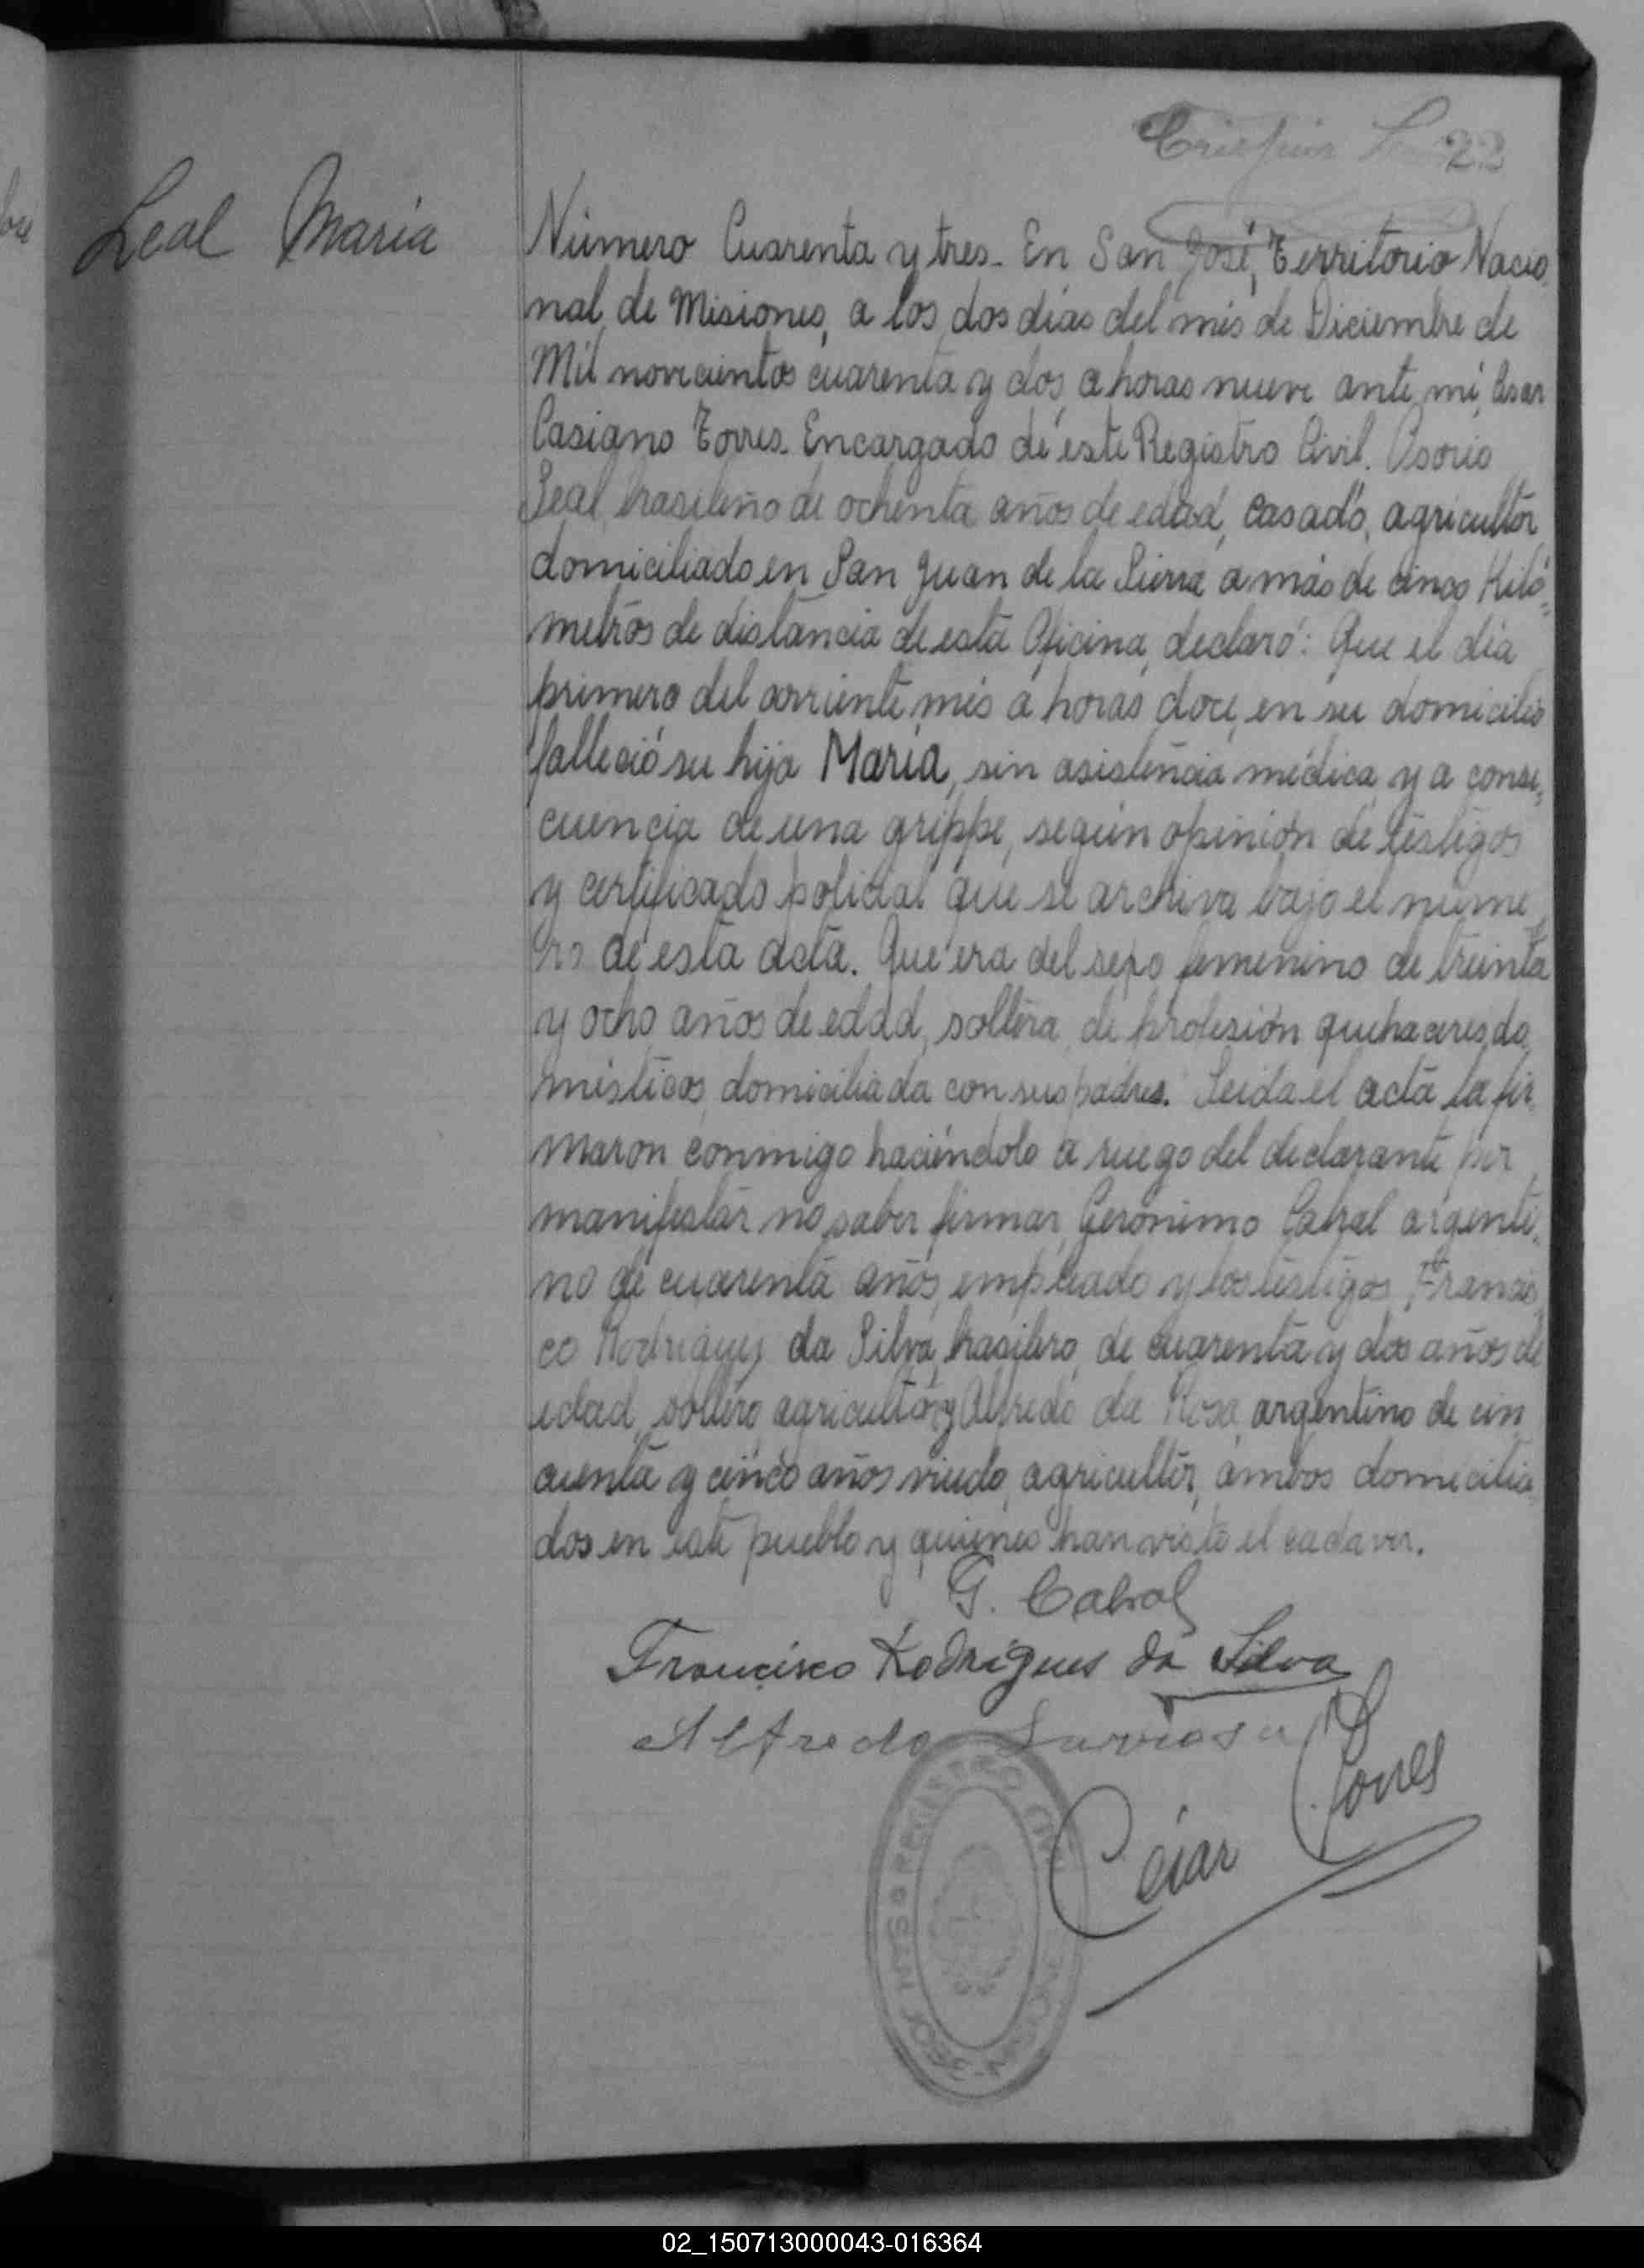 22
Leal Maria
Número Cuarenta y tres. En San José, Territorio Nacio
nal de Misiones, a los dos días del mes de Diciembre de
Mil novecientos cuarenta y dos, a horas nueve ante mí, Cesar
Casiano Torres. Encargado de este Registro Civil. Osorio
Leal, brasileño de ochenta años de edad, casado, agricultor
domiciliado en San Juan de la Sierra a más de cinco Kiló-
metros de distancia de esta Oficina, declaró: Que el día
primero del corriente mes a horas doce, en su domicilio
falleció su hija María, sin asistencia médica y a conse-
cuencia de una grippe, según opinión de testigos
y certificado policial que se archiva bajo el núme
ro de esta acta. Que era del sexo femenino de treinta
y ocho años de edad, soltera, de profesión quehaceres do
mésticos, domiciliada con sus padres. Leida el acta la fir
maron conmigo haciéndolo a ruego del declarante por
manifestar no saber firmar, Gerónimo Cabral argenti-
no de cuarenta años, empleado y los testigos, Francis
co Rodriguez da Silva, brasilero, de cuarenta y dos años de
edad, soltero, agricultor y Alfredo da Rosa, argentino de cin
cuenta y cinco años viudo, agricultor, ambos domicilia
dos en este pueblo y quienes han visto el cadaver.
G. Cabral
Francisco Rodrigues da Silva
Alfredo
César Torres
REGISTRO CIVIL
SAN JOSÉ
02_150713000043-016364